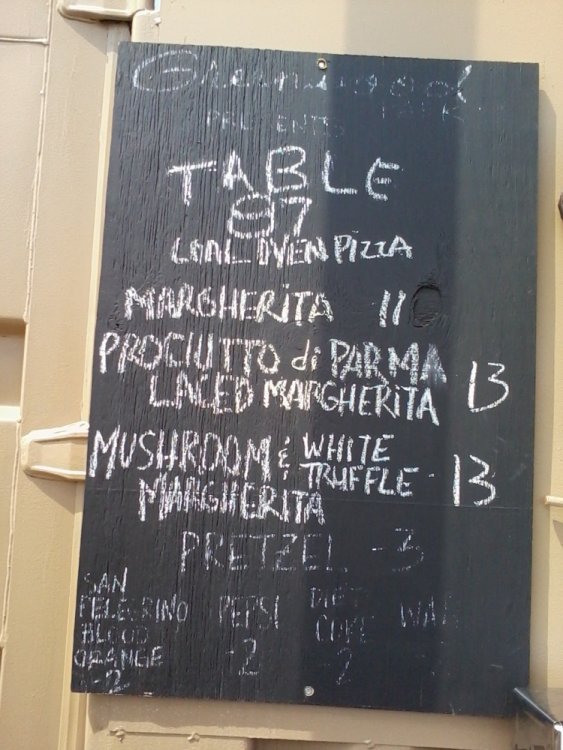 Greenwood PARK
PRESENTS
TABLE
87
COAL OVEN PIZZA
MARGHERITA - 11
PROCIUTTO di PARMA
LACED MARGHERITA 13
MUSHROOM & WHITE TRUFFLE - 13
MARGHERITA
PRETZEL - 3
SAN PELEGRINO BLOOD ORANGE - 2
PEPSI - 2
DIET COKE - 2